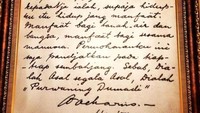 kepadaku ialah, supaja hidup-
ku du hidup jang manfaat.
Manfaat bagi tanah, air dan
bangsa, manfaat bagi sesama
manusia. Permohonanku ini
saja pandjatkan pada tiap-
tiap sembahjang. Sebab, Dia-
lah Asal segala Asal, Dialah
"Purwaning Dumadi"
Soekarno.-